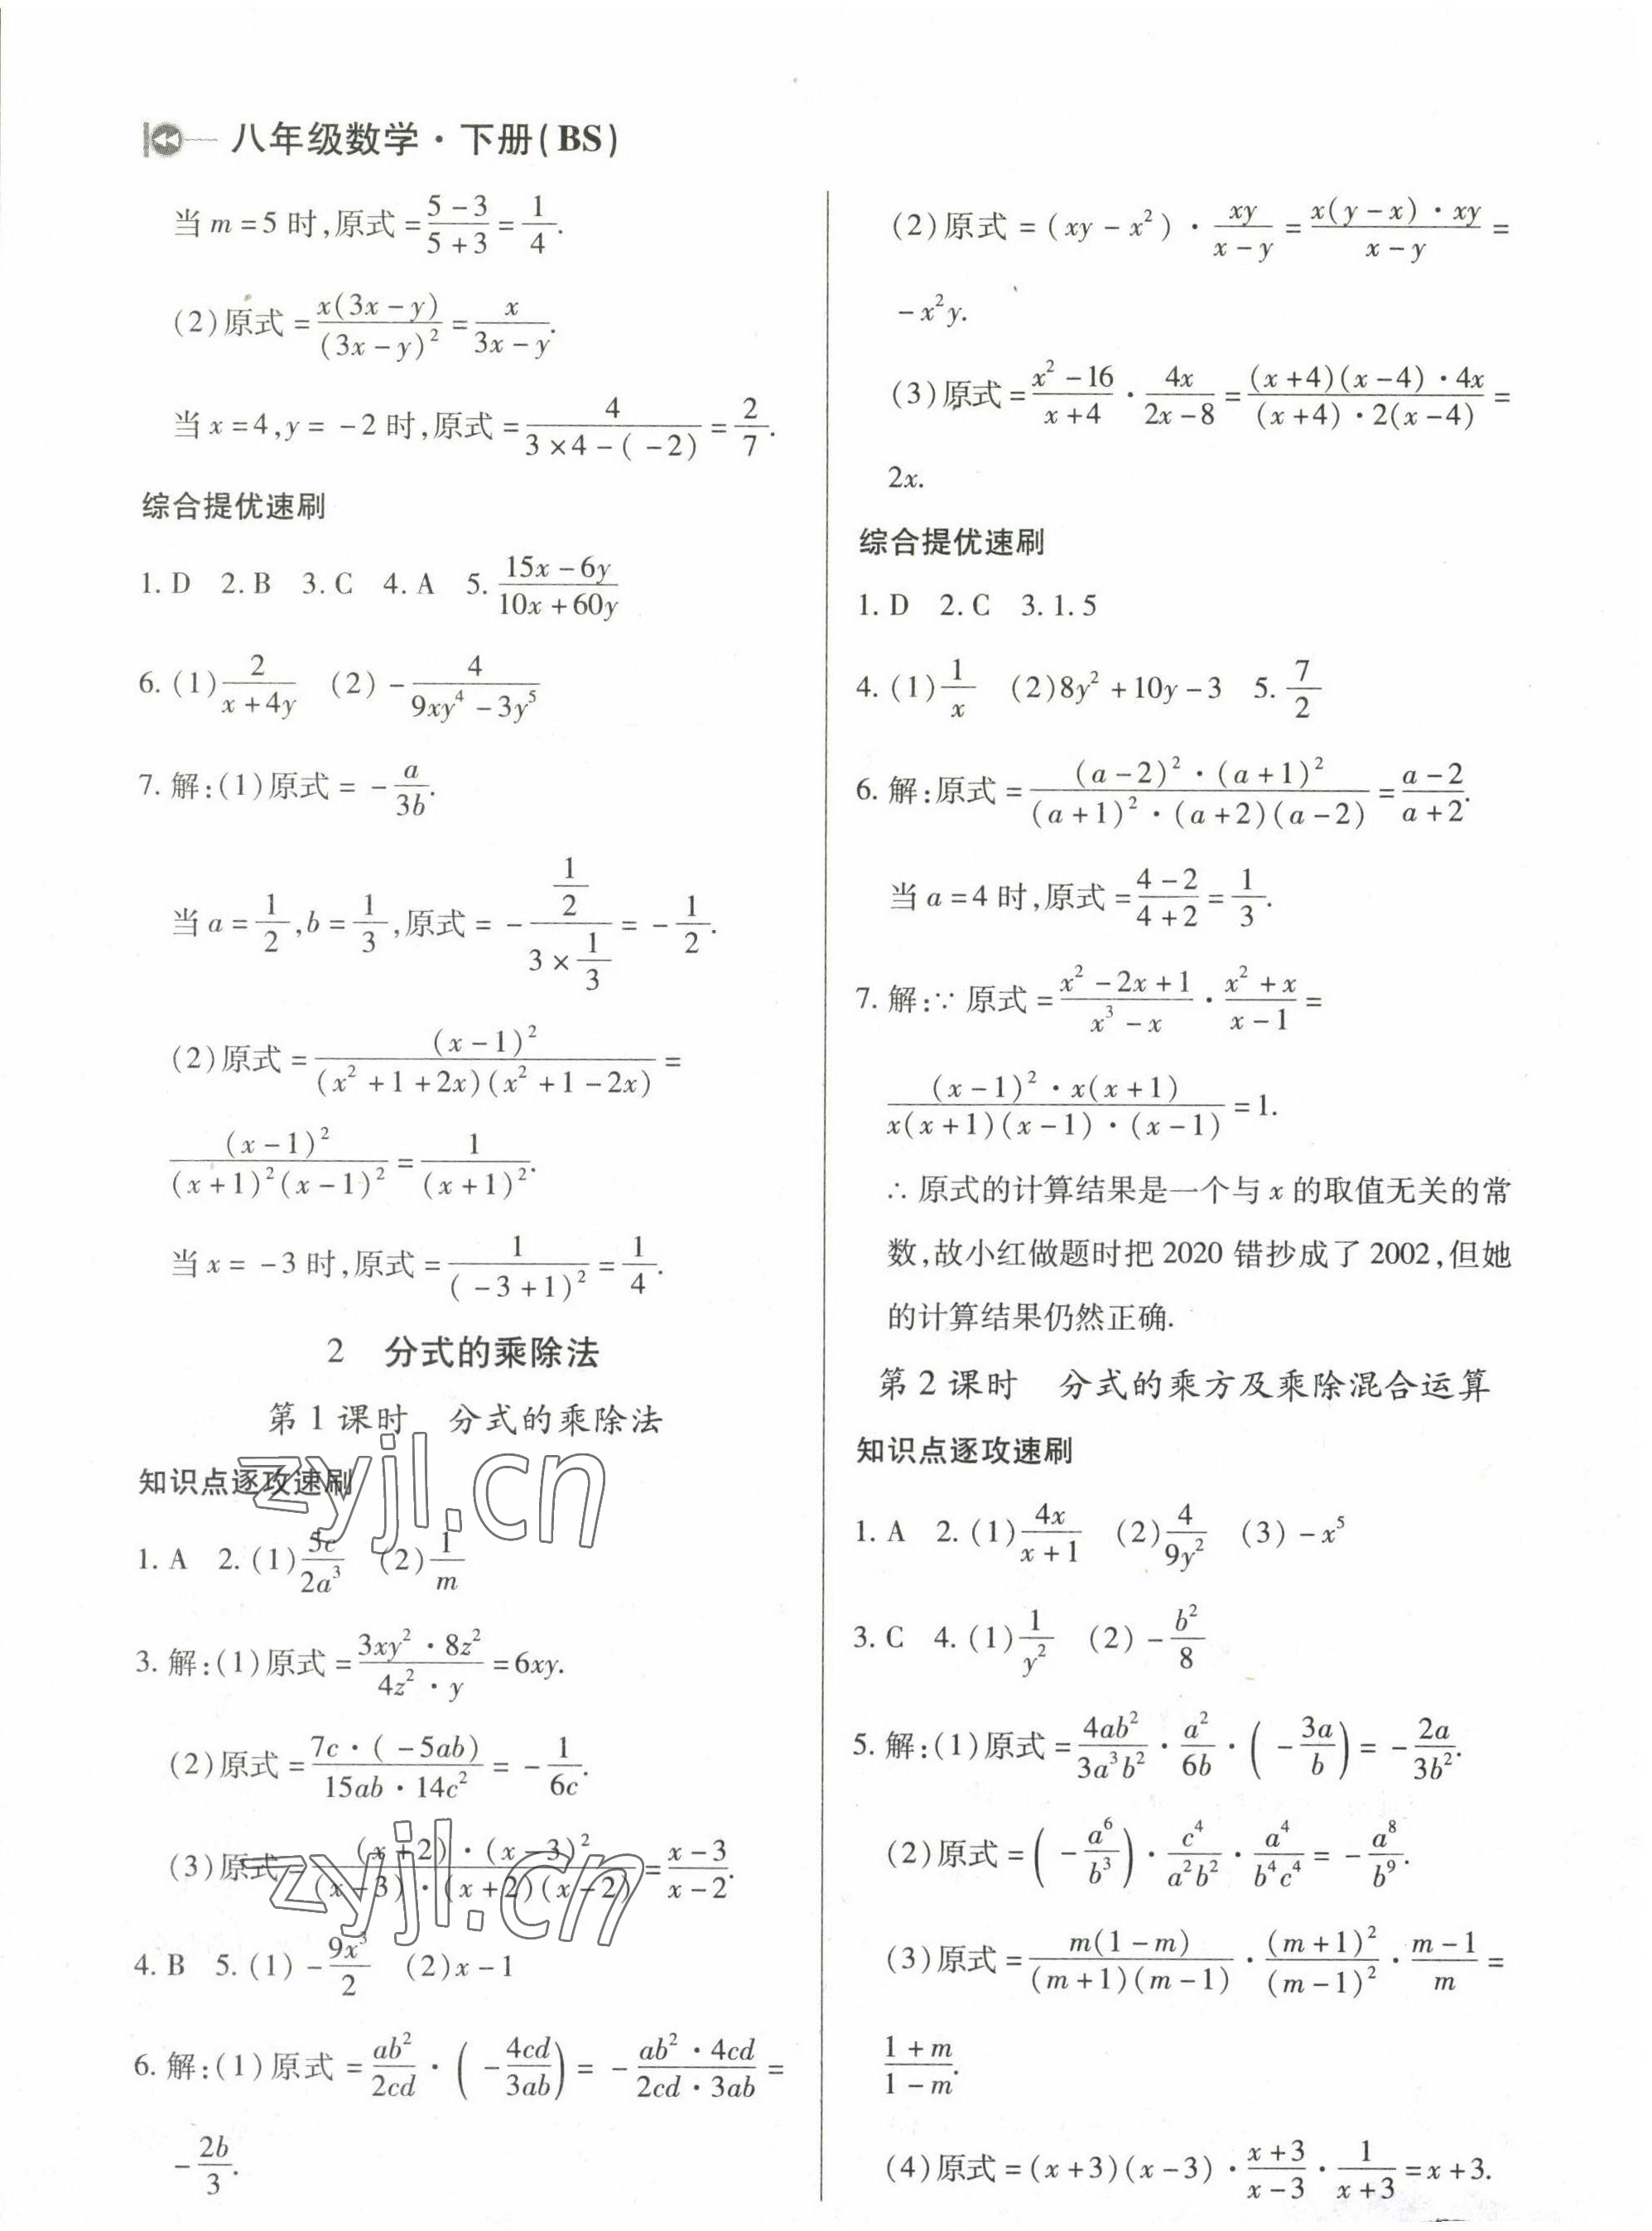 八年级数学·下册(BS)
当 m=5 时,原式=\frac{5-3}{5+3}=\frac{1}{4}.
(2)原式=\frac{x(3x-y)}{(3x-y)^2}=\frac{x}{3x-y}.
当 x=4,y=-2 时,原式=\frac{4}{3×4-(-2)}=\frac{2}{7}.
综合提优速刷
1. D 2. B 3. C 4. A 5. \frac{15x-6y}{10x+60y}
6. (1)\frac{2}{x+4y} (2)-\frac{4}{9xy^4-3y^5}
7. 解:(1)原式=-\frac{a}{3b}.
当 a=\frac{1}{2},b=\frac{1}{3},原式=-\frac{\frac{1}{2}}{3×\frac{1}{3}}=-\frac{1}{2}.
(2)原式=\frac{(x-1)^2}{(x^2+1+2x)(x^2+1-2x)}=
\frac{(x-1)^2}{(x+1)^2(x-1)^2}=\frac{1}{(x+1)^2}.
当 x=-3 时,原式=\frac{1}{(-3+1)^2}=\frac{1}{4}.
2 分式的乘除法
第 1 课时 分式的乘除法
知识点逐攻速刷
1. A 2. (1)\frac{5c}{2a^3} (2)\frac{1}{m}
3. 解:(1)原式=\frac{3xy^2·8z^2}{4z^2·y}=6xy.
(2)原式=\frac{7c·(-5ab)}{15ab·14c^2}=-\frac{1}{6c}.
(3)原式=\frac{(x+2)·(x-3)^2}{(x-3)·(x+2)(x-2)}=\frac{x-3}{x-2}.
4. B 5. (1)-\frac{9x^3}{2} (2)x-1
6. 解:(1)原式=\frac{ab^2}{2cd}·(-\frac{4cd}{3ab})=-\frac{ab^2·4cd}{2cd·3ab}=
-\frac{2b}{3}.
(2)原式=(xy-x^2)·\frac{xy}{x-y}=\frac{x(y-x)·xy}{x-y}=
-x^2y.
(3)原式=\frac{x^2-16}{x+4}·\frac{4x}{2x-8}=\frac{(x+4)(x-4)·4x}{(x+4)·2(x-4)}=
2x.
综合提优速刷
1. D 2. C 3. 1.5
4. (1)\frac{1}{x} (2)8y^2+10y-3 5. \frac{7}{2}
6. 解:原式=\frac{(a-2)^2·(a+1)^2}{(a+1)^2·(a+2)(a-2)}=\frac{a-2}{a+2}.
当 a=4 时,原式=\frac{4-2}{4+2}=\frac{1}{3}.
7. 解:∵ 原式=\frac{x^2-2x+1}{x^3-x}·\frac{x^2+x}{x-1}=
\frac{(x-1)^2·x(x+1)}{x(x+1)(x-1)·(x-1)}=1.
∴ 原式的计算结果是一个与 x 的取值无关的常
数,故小红做题时把 2020 错抄成了 2002,但她
的计算结果仍然正确.
第 2 课时 分式的乘方及乘除混合运算
知识点逐攻速刷
1. A 2. (1)\frac{4x}{x+1} (2)\frac{4}{9y^2} (3)-x^5
3. C 4. (1)\frac{1}{y^2} (2)-\frac{b^2}{8}
5. 解:(1)原式=\frac{4ab^2}{3a^3b^2}·\frac{a^2}{6b}·(-\frac{3a}{b})=-\frac{2a}{3b^2}.
(2)原式=(-\frac{a^6}{b^3})·\frac{c^4}{a^2b^2}·\frac{a^4}{b^4c^4}=-\frac{a^8}{b^9}.
(3)原式=\frac{m(1-m)}{(m+1)(m-1)}·\frac{(m+1)^2}{(m-1)^2}·\frac{m-1}{m}=
\frac{1+m}{1-m}.
(4)原式=(x+3)(x-3)·\frac{x+3}{x-3}·\frac{1}{x+3}=x+3.
zyjl.cn
zyjl.cn